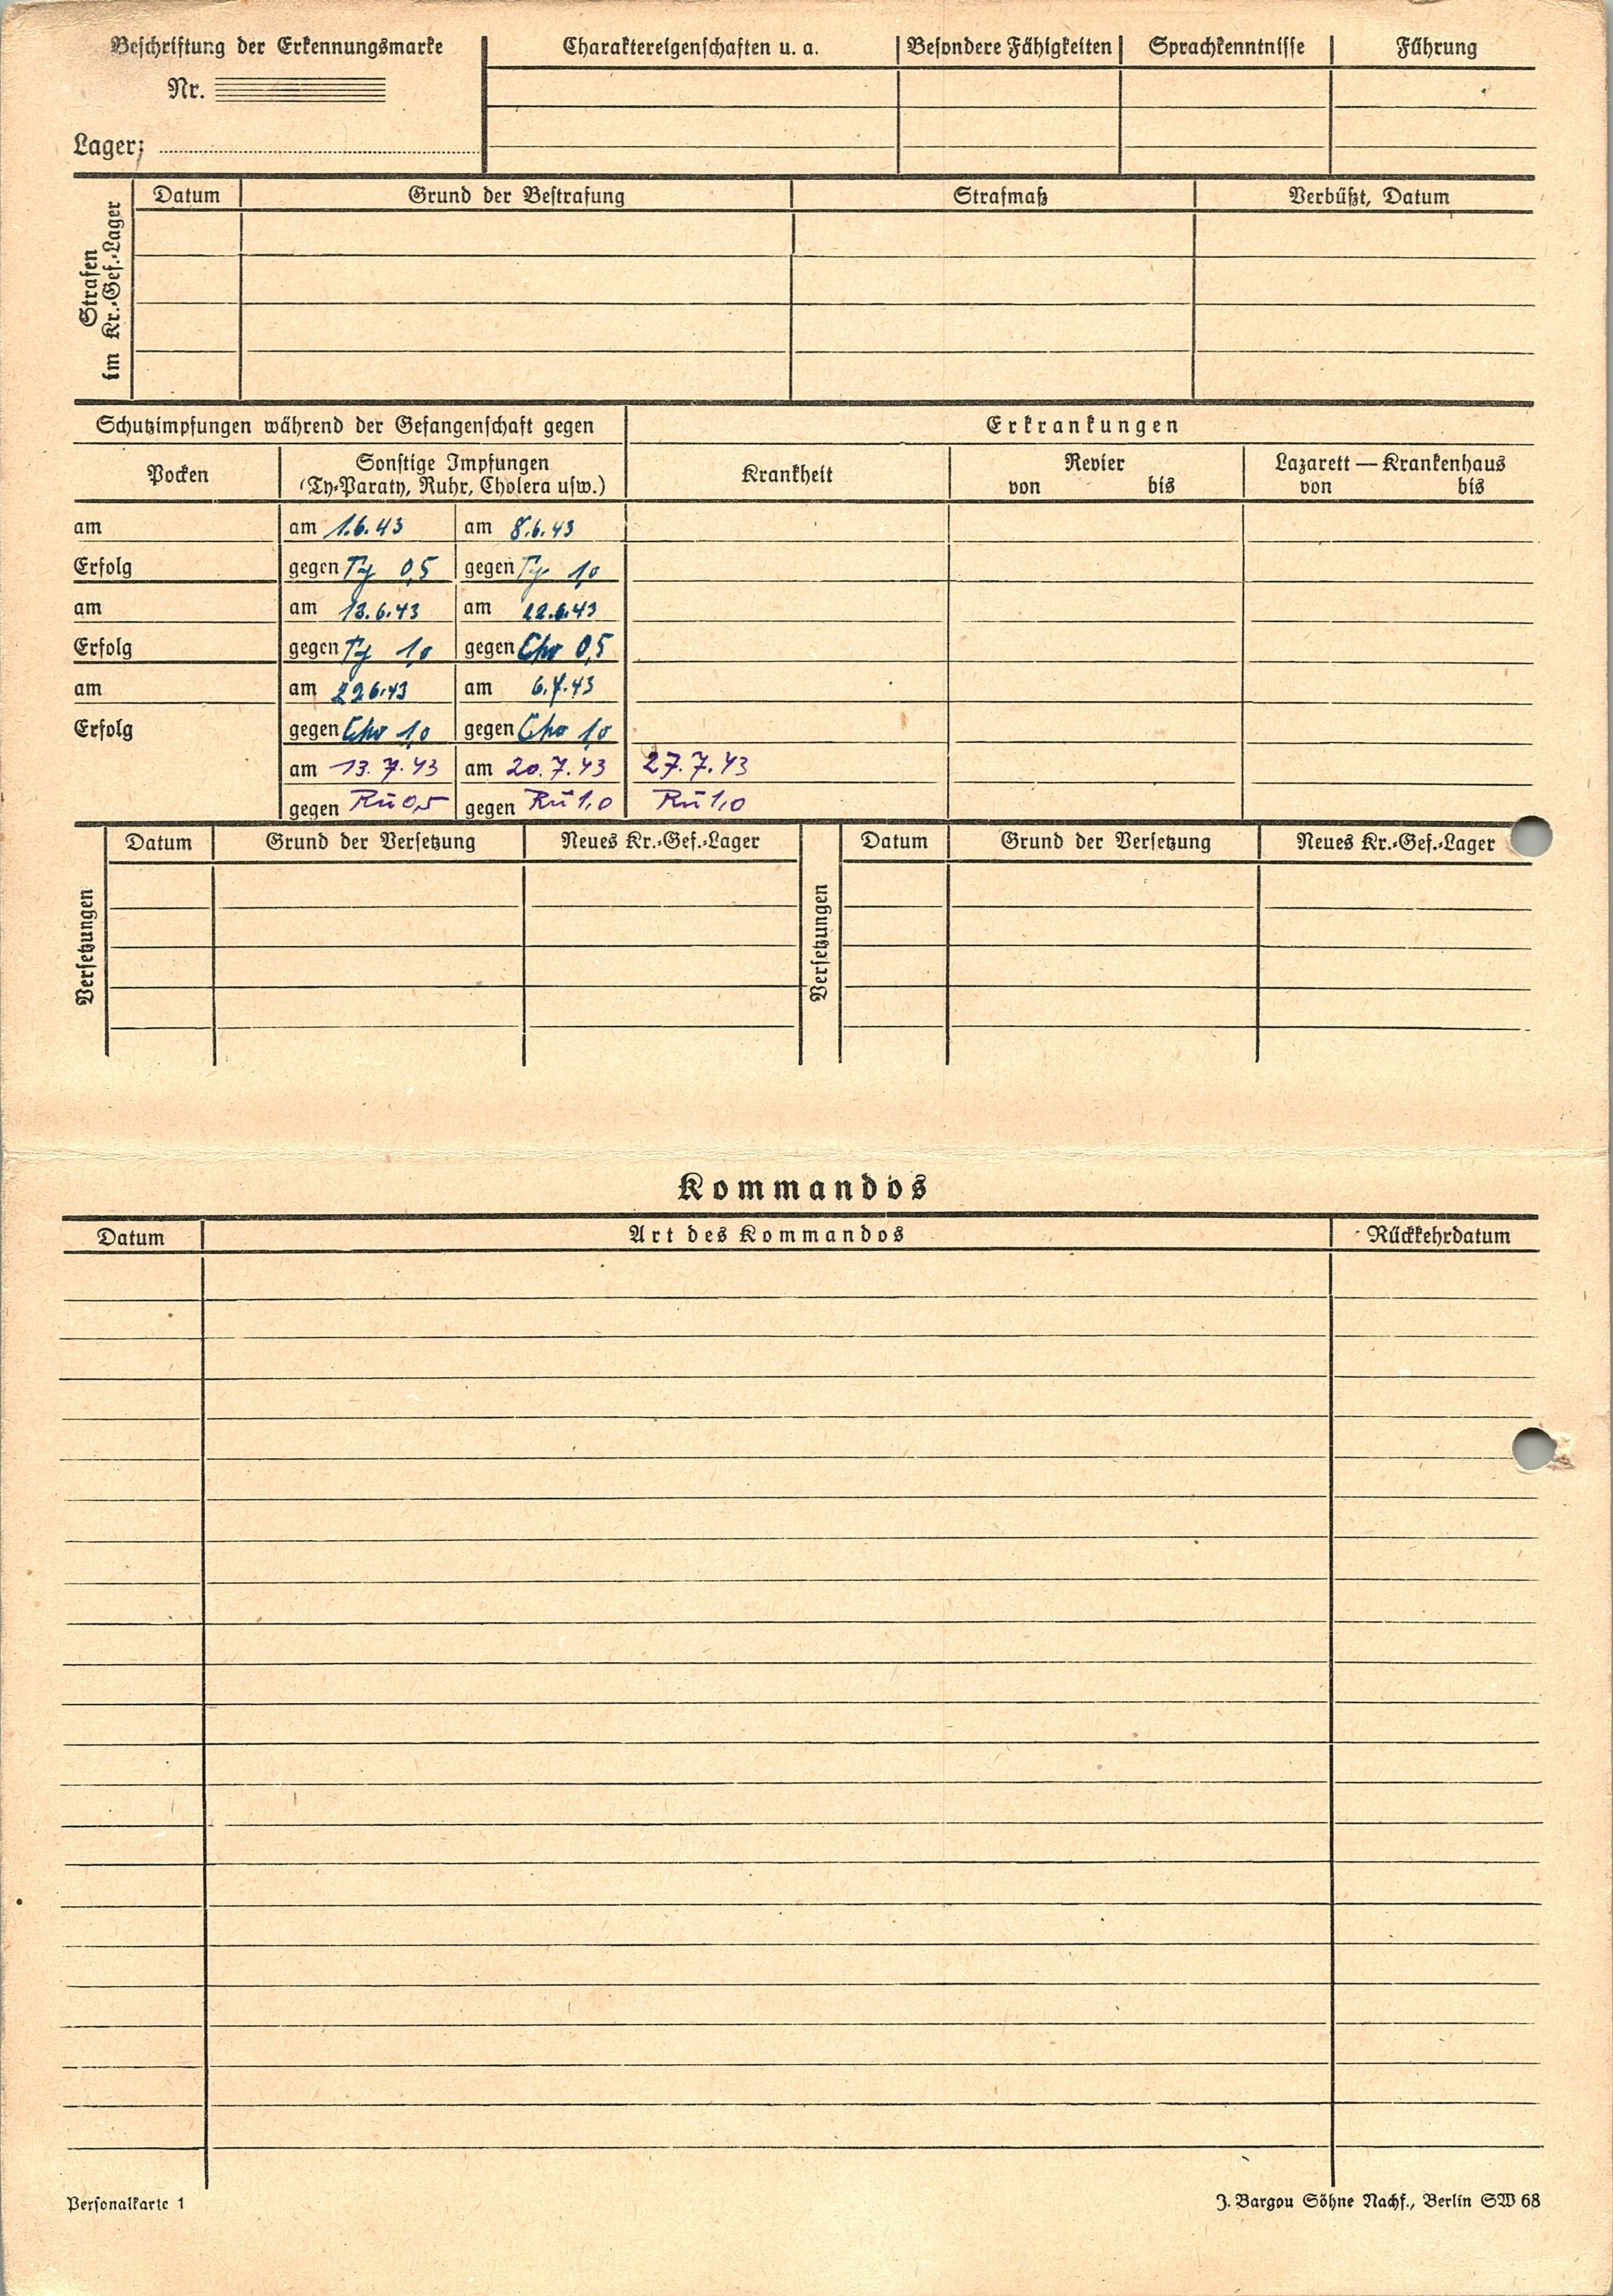 Beschriftung der Erkennungsmarke
Nr.
Lager:
Charaktereigenschaften u. a.
Besondere Fähigkeiten
Sprachkenntnisse
Führung
Strafen
im Kr.-Gef.-Lager
Datum
Grund der Bestrafung
Strafmaß
Verbüßt, Datum
Schutzimpfungen während der Gefangenschaft gegen
Erkrankungen
Pocken
Sonstige Impfungen
(Ty-Paraty, Ruhr, Cholera usw.)
Krankheit
Revier
von bis
Lazarett — Krankenhaus
von bis
am am 1.6.43 am 8.6.43
Erfolg gegen Ty 0,5 gegen Ty 1,0
am am 13.6.43 am 22.6.43
Erfolg gegen Ty 1,0 gegen Cho 0,5
am am 29.6.43 am 6.7.43
Erfolg gegen Cho 1,0 gegen Cho 1,0
am 13.7.43 am 20.7.43 27.7.43
gegen Ru 0,5 gegen Ru 1,0 Ru 1,0
Versetzungen
Datum Grund der Versetzung Neues Kr.-Gef.-Lager
Versetzungen
Datum Grund der Versetzung Neues Kr.-Gef.-Lager
Kommandos
Datum Art des Kommandos Rückkehrdatum
Personalkarte 1
J. Bargou Söhne Nachf., Berlin SW 68